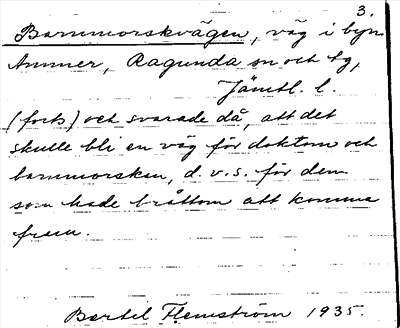 3.
Barnmorskvägen, väg i byn
Ammer, Ragunda sn och tg,
Jämtl. l.
(forts) och svarade då, att det
skulle bli en väg för doktorn och
barnmorskan, d.v.s. för dem
som hade bråttom att komma
fram.
Bertil Flemström 1935.